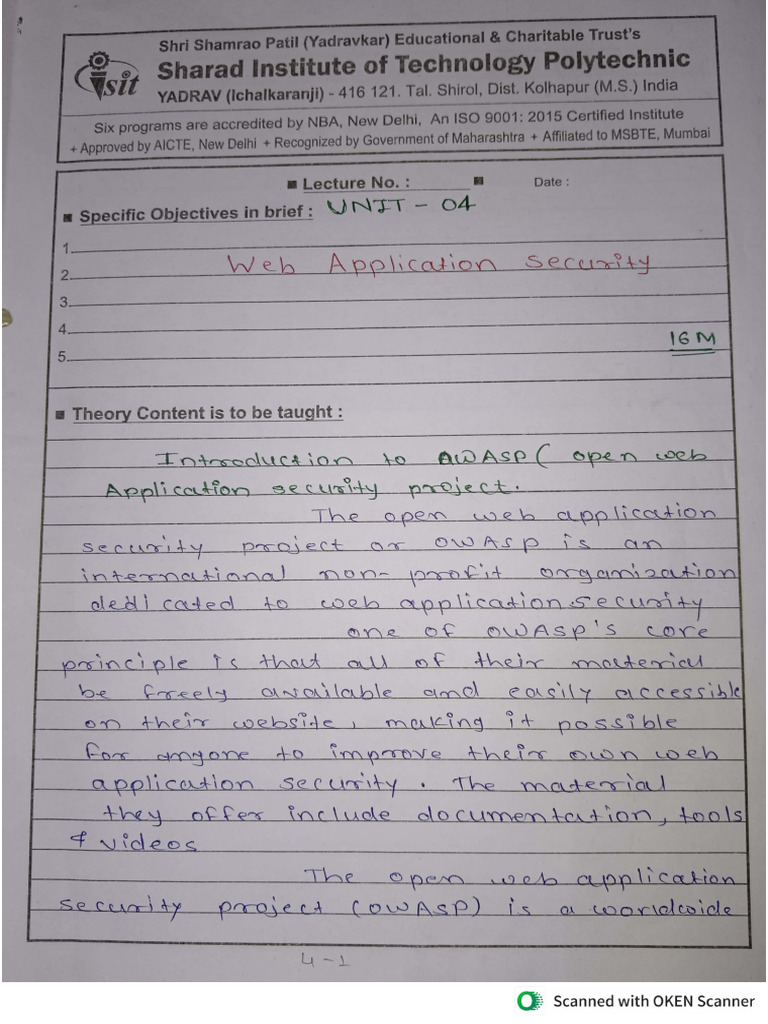 Shri Shamrao Patil (Yadravkar) Educational & Charitable Trust's
Sharad Institute of Technology Polytechnic
YADRAV (Ichalkaranji) - 416 121. Tal. Shirol, Dist. Kolhapur (M.S.) India
Six programs are accredited by NBA, New Delhi, An ISO 9001: 2015 Certified Institute
+ Approved by AICTE, New Delhi + Recognized by Government of Maharashtra + Affiliated to MSBTE, Mumbai
sit
■ Lecture No. : ■ Date :
■ Specific Objectives in brief : UNIT - 04
1.
2. Web Application security
3.
4.
16M
5.
■ Theory Content is to be taught :
Introduction to OWASP ( open web
Application security project.
The open web application
security project or OWASP is an
international non- profit organization
dedicated to web application security
one of OWASP's core
principle is that all of their material
be freely available and easily accessible
on their website, making it possible
for anyone to improve their own web
application security. The material
they offer include documentation, tools
& videos
The open web application
security project (OWASP) is a worldwide
4-1
Scanned with OKEN Scanner